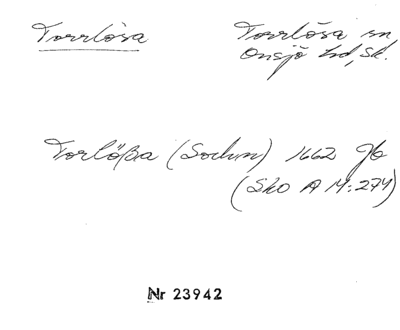 Torrlösa
Torrlösa sn
Onsjö hd, Sk.
Torlößa (Sochn) 1662 gb
(Sko A M:274)
Nr 23942